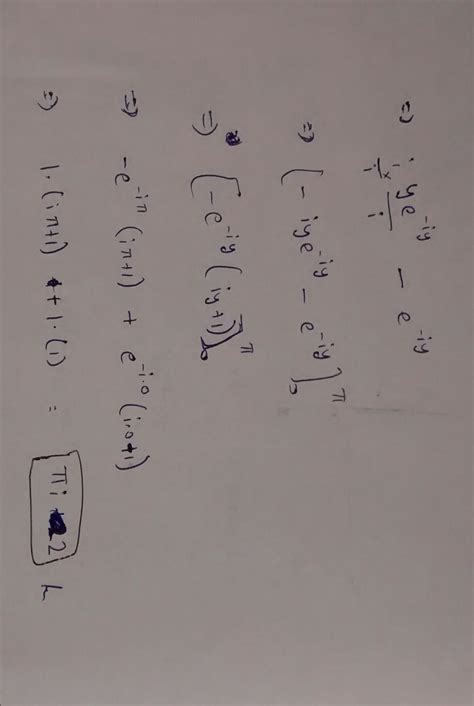 ⇒ i/i × ye^{-iy}/i − e^{-iy}
⇒ [−iye^{-iy} − e^{-iy}]_0^π
⇒ [−e^{-iy}(iy+1)]_0^π
⇒ −e^{-iπ}(iπ+1) + e^{-i.0}(i.0+1)
⇒ 1.(iπ+1) +1.(1) = πi + 2